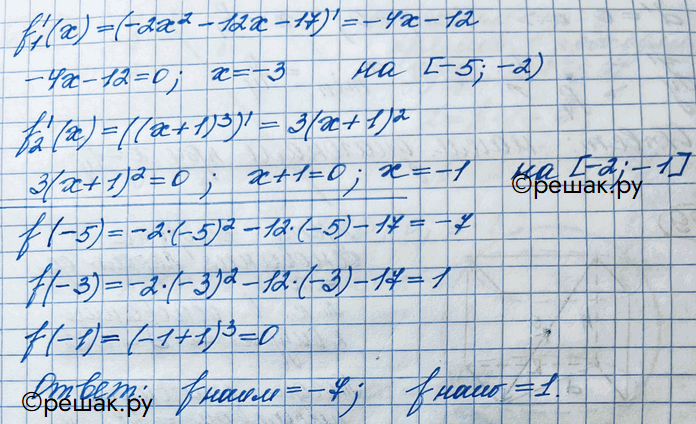 f₁'(x) = (-2x² - 12x - 17)' = -4x - 12
-4x - 12 = 0; x = -3 на [-5; -2)
f₂'(x) = ((x+1)³)' = 3(x+1)²
3(x+1)² = 0; x+1 = 0; x = -1 на [-2; -1]
©решак.ру
f(-5) = -2·(-5)² - 12·(-5) - 17 = -7
f(-3) = -2·(-3)² - 12·(-3) - 17 = 1
f(-1) = (-1+1)³ = 0
Ответ: fнаим = -7; fнаиб = 1.
©решак.ру